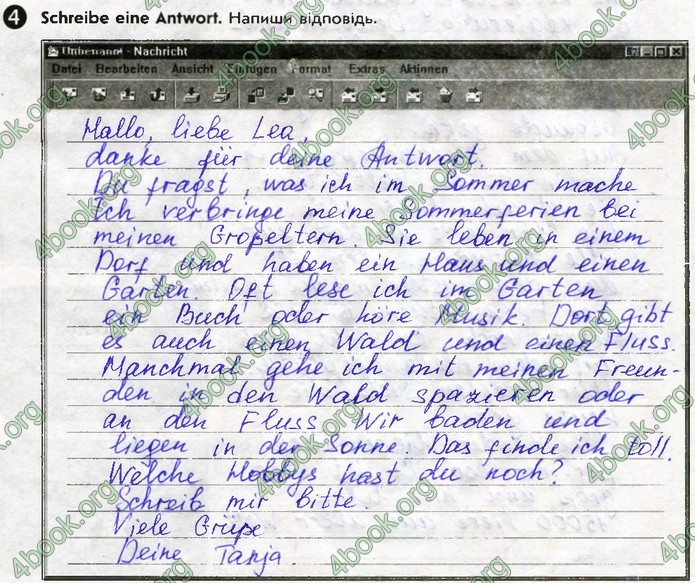 4 Schreibe eine Antwort. Напиши відповідь.
Unbenannt - Nachricht
Datei Bearbeiten Ansicht Einfügen Format Extras Aktionen
Hallo, liebe Lea,
danke für deine Antwort.
Du fragst, was ich im Sommer mache.
Ich verbringe meine Sommerferien bei
meinen Großeltern. Sie leben in einem
Dorf und haben ein Haus und einen
Garten. Oft lese ich im Garten
ein Buch oder höre Musik. Dort gibt
es auch einen Wald und einen Fluss.
Manchmal gehe ich mit meinen Freun-
den in den Wald spazieren oder
an den Fluss. Wir baden und
liegen in der Sonne. Das finde ich toll.
Welche Hobbys hast du noch?
Schreib mir bitte.
Viele Grüße
Deine Tanja.
4book.org